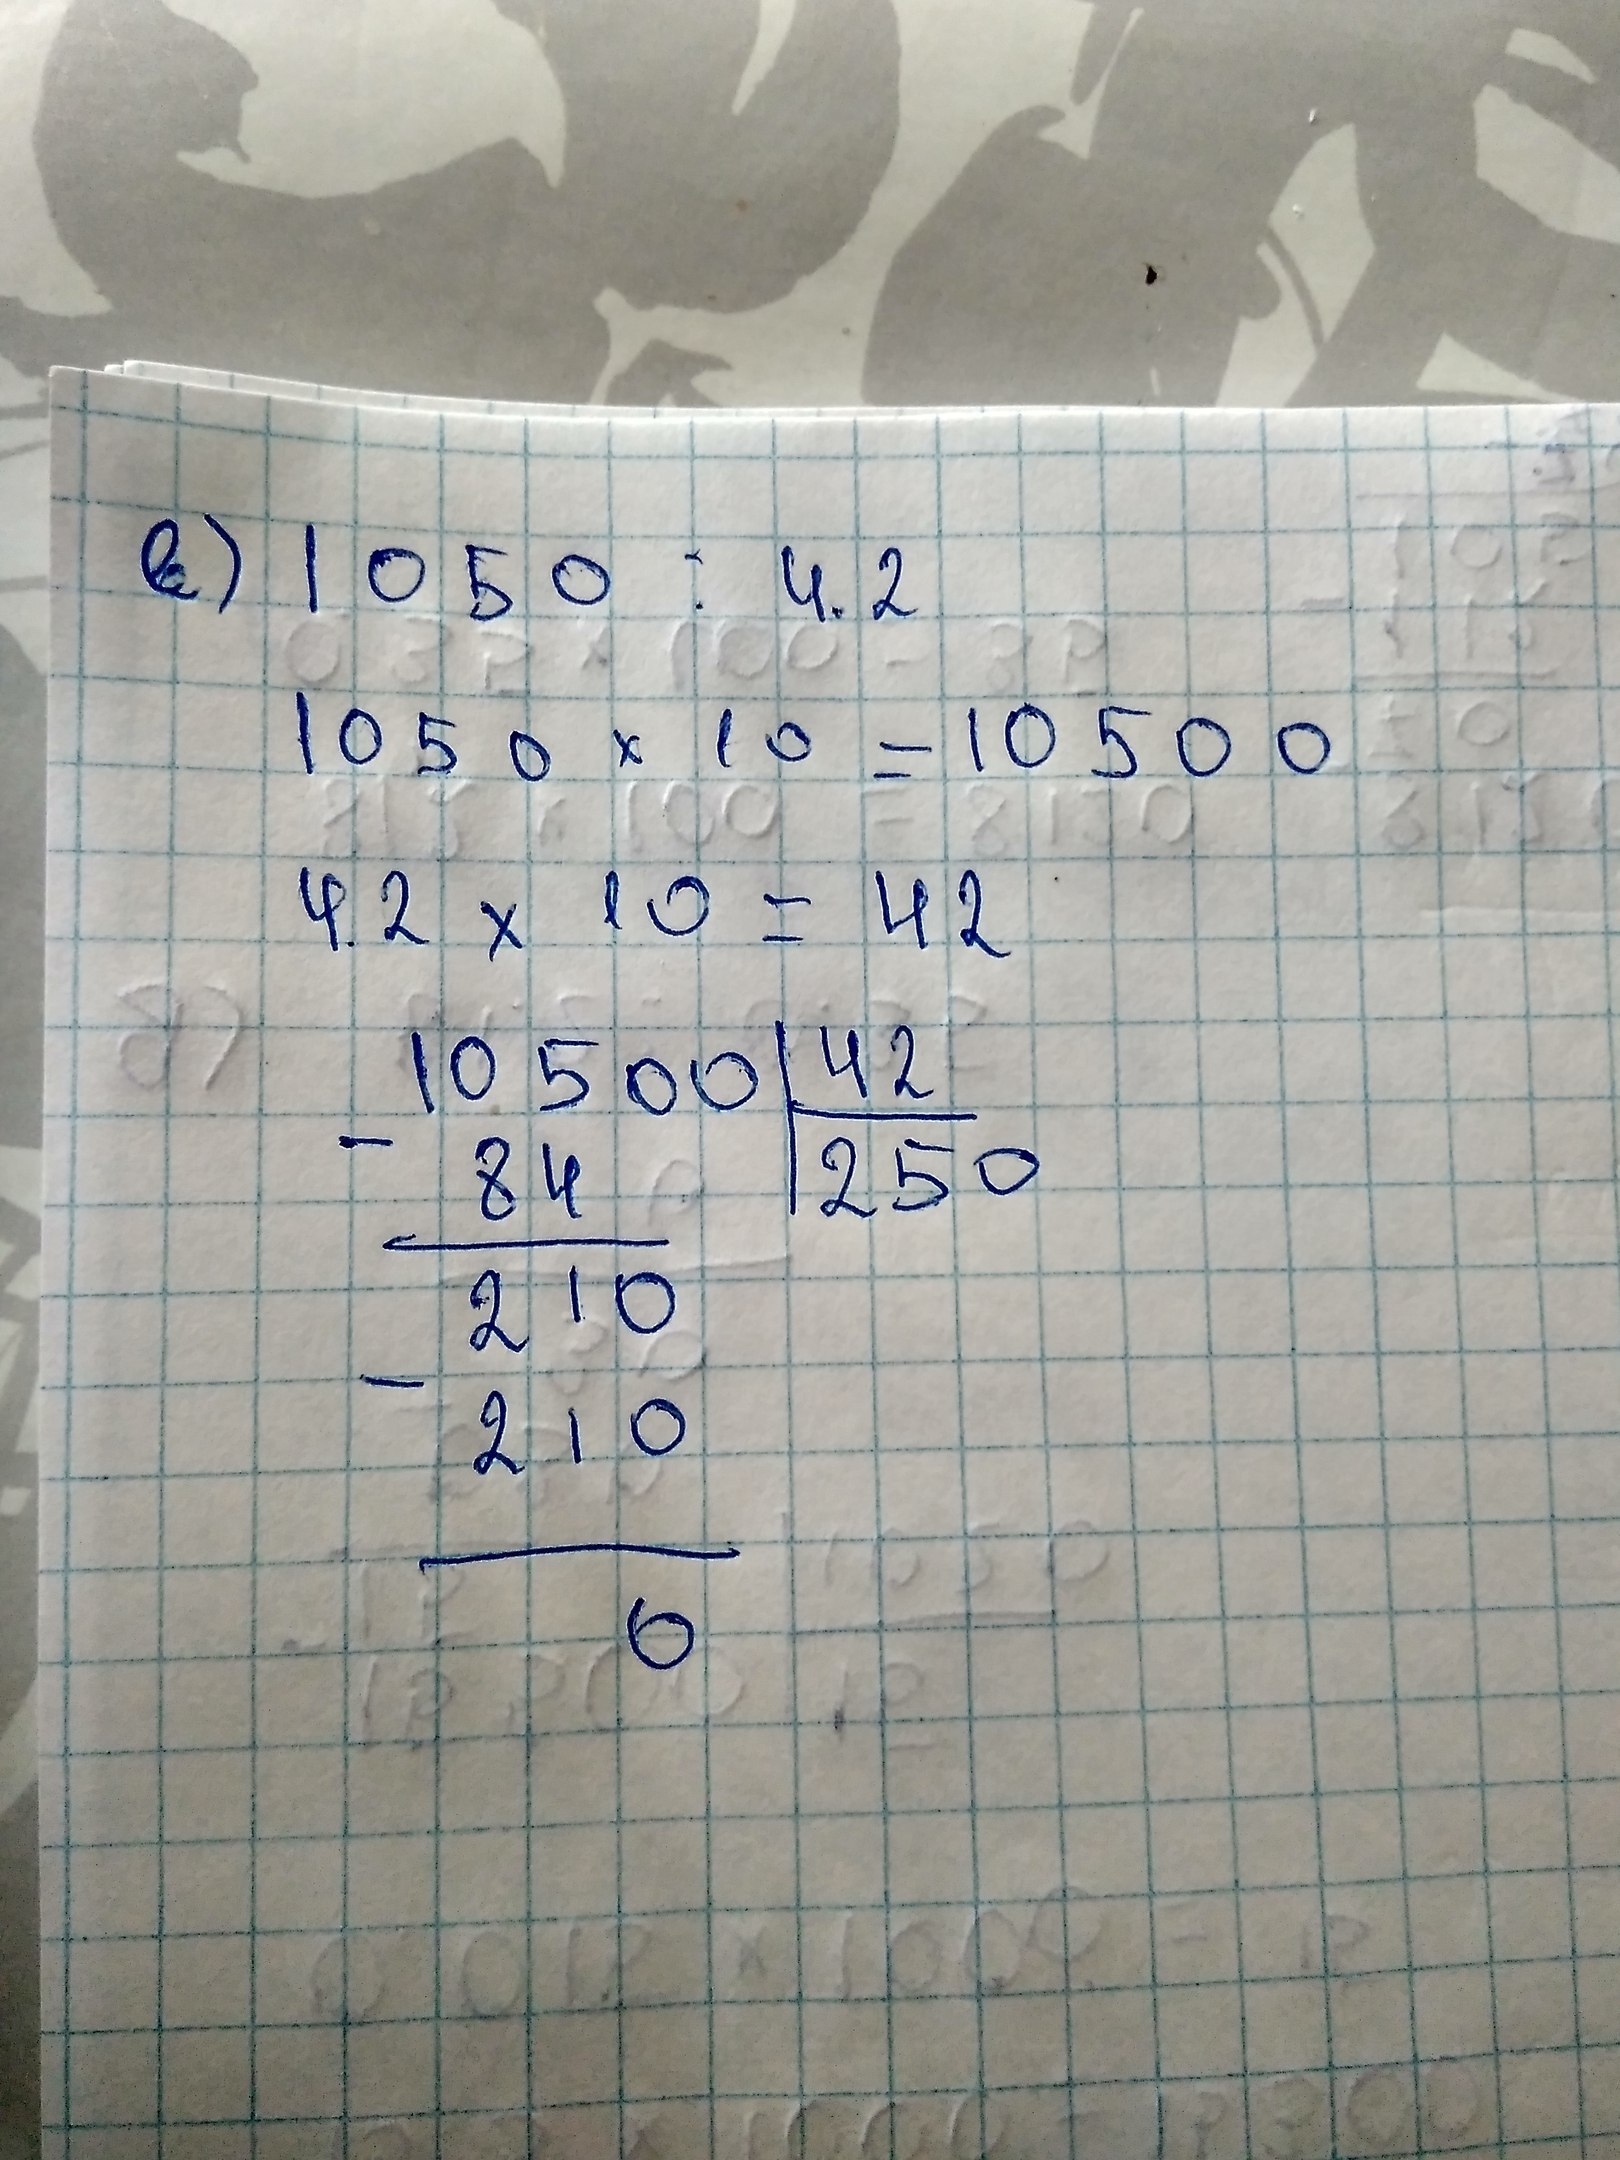 в) 1050 : 4.2
1050 x 10 = 10500
4.2 x 10 = 42
10500 | 42
- 84 | 250
210
- 210
0